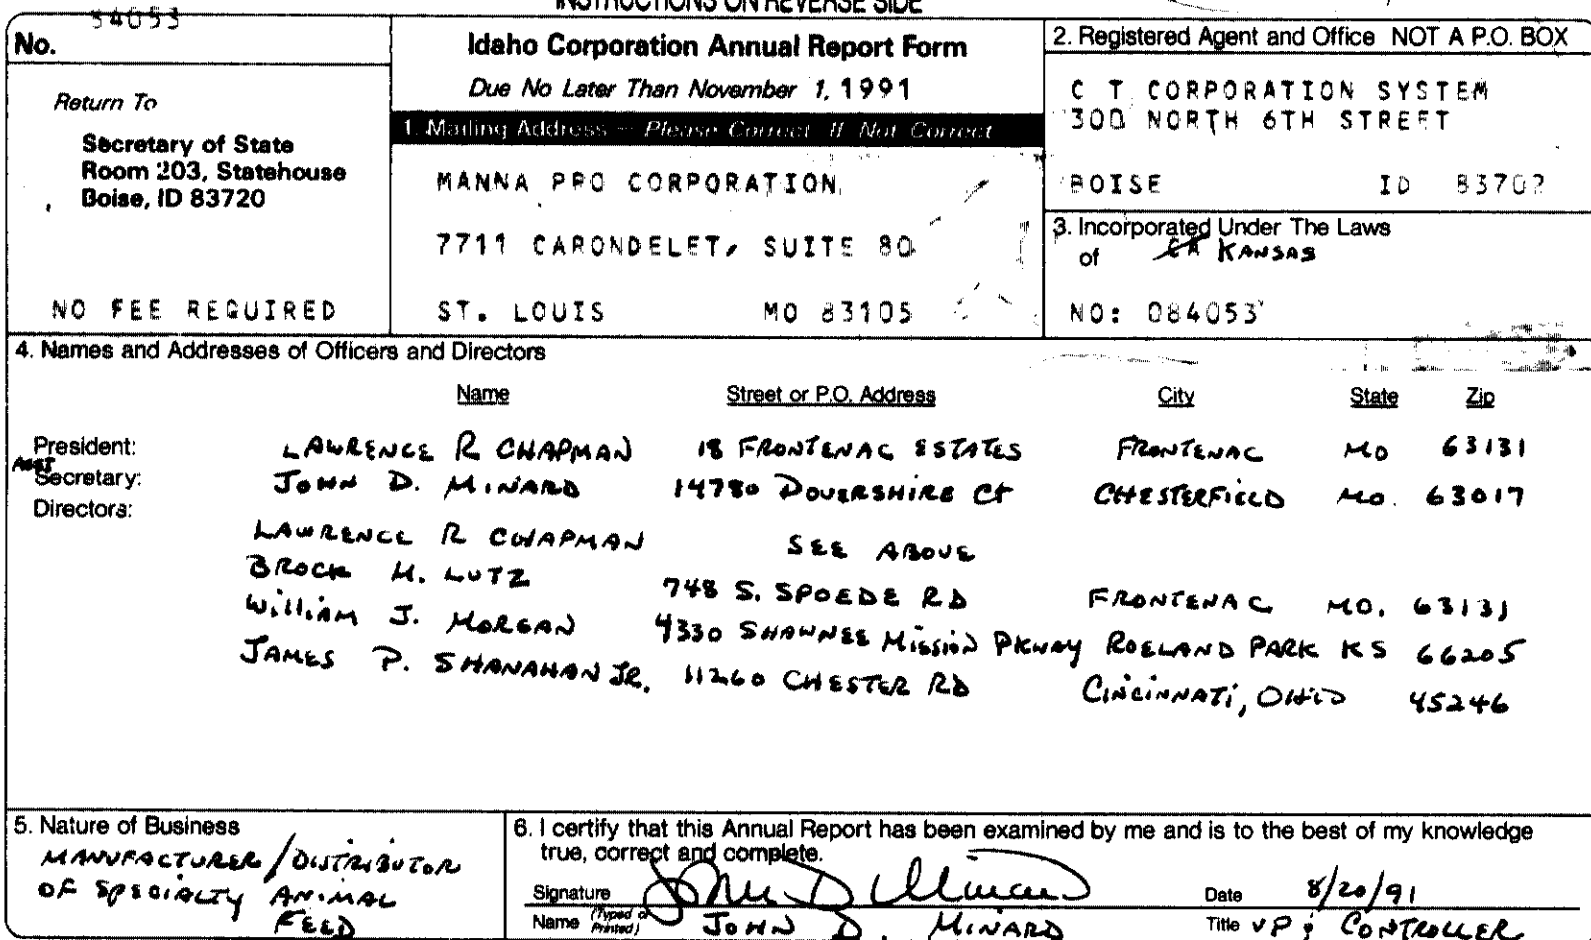 INSTRUCTIONS ON REVERSE SIDE
54053
No.
Return To
Secretary of State
Room 203, Statehouse
Boise, ID 83720
NO FEE REQUIRED
Idaho Corporation Annual Report Form
Due No Later Than November 1, 1991
1. Mailing Address - Please Correct If Not Correct
MANNA PRO CORPORATION
7711 CARONDELET, SUITE 80
ST. LOUIS MO 83105
2. Registered Agent and Office NOT A P.O. BOX
C T CORPORATION SYSTEM
300 NORTH 6TH STREET
BOISE ID 83702
3. Incorporated Under The Laws
of KANSAS
NO: 084053
4. Names and Addresses of Officers and Directors
Name Street or P.O. Address City State Zip
President: LAWRENCE R CHAPMAN 18 FRONTENAC ESTATES FRONTENAC MO 63131
ASST Secretary: JOHN D. MINARD 14780 DOVERSHIRE Ct CHESTERFIELD MO. 63017
Directors:
LAWRENCE R CHAPMAN SEE ABOVE
BROCK H. LUTZ 748 S. SPOEDE RD FRONTENAC MO. 63131
William J. MORGAN 4330 SHAWNEE MISSION PKWAY ROELAND PARK KS 66205
JAMES P. SHANAHAN JR. 11260 CHESTER RD CINCINNATI, OHIO 45246
5. Nature of Business
MANUFACTURER/DISTRIBUTOR
OF SPECIALTY ANIMAL
FEED
6. I certify that this Annual Report has been examined by me and is to the best of my knowledge
true, correct and complete.
Signature Date 8/20/91
Name (Typed or Printed) JOHN D. MINARD Title VP & CONTROLLER